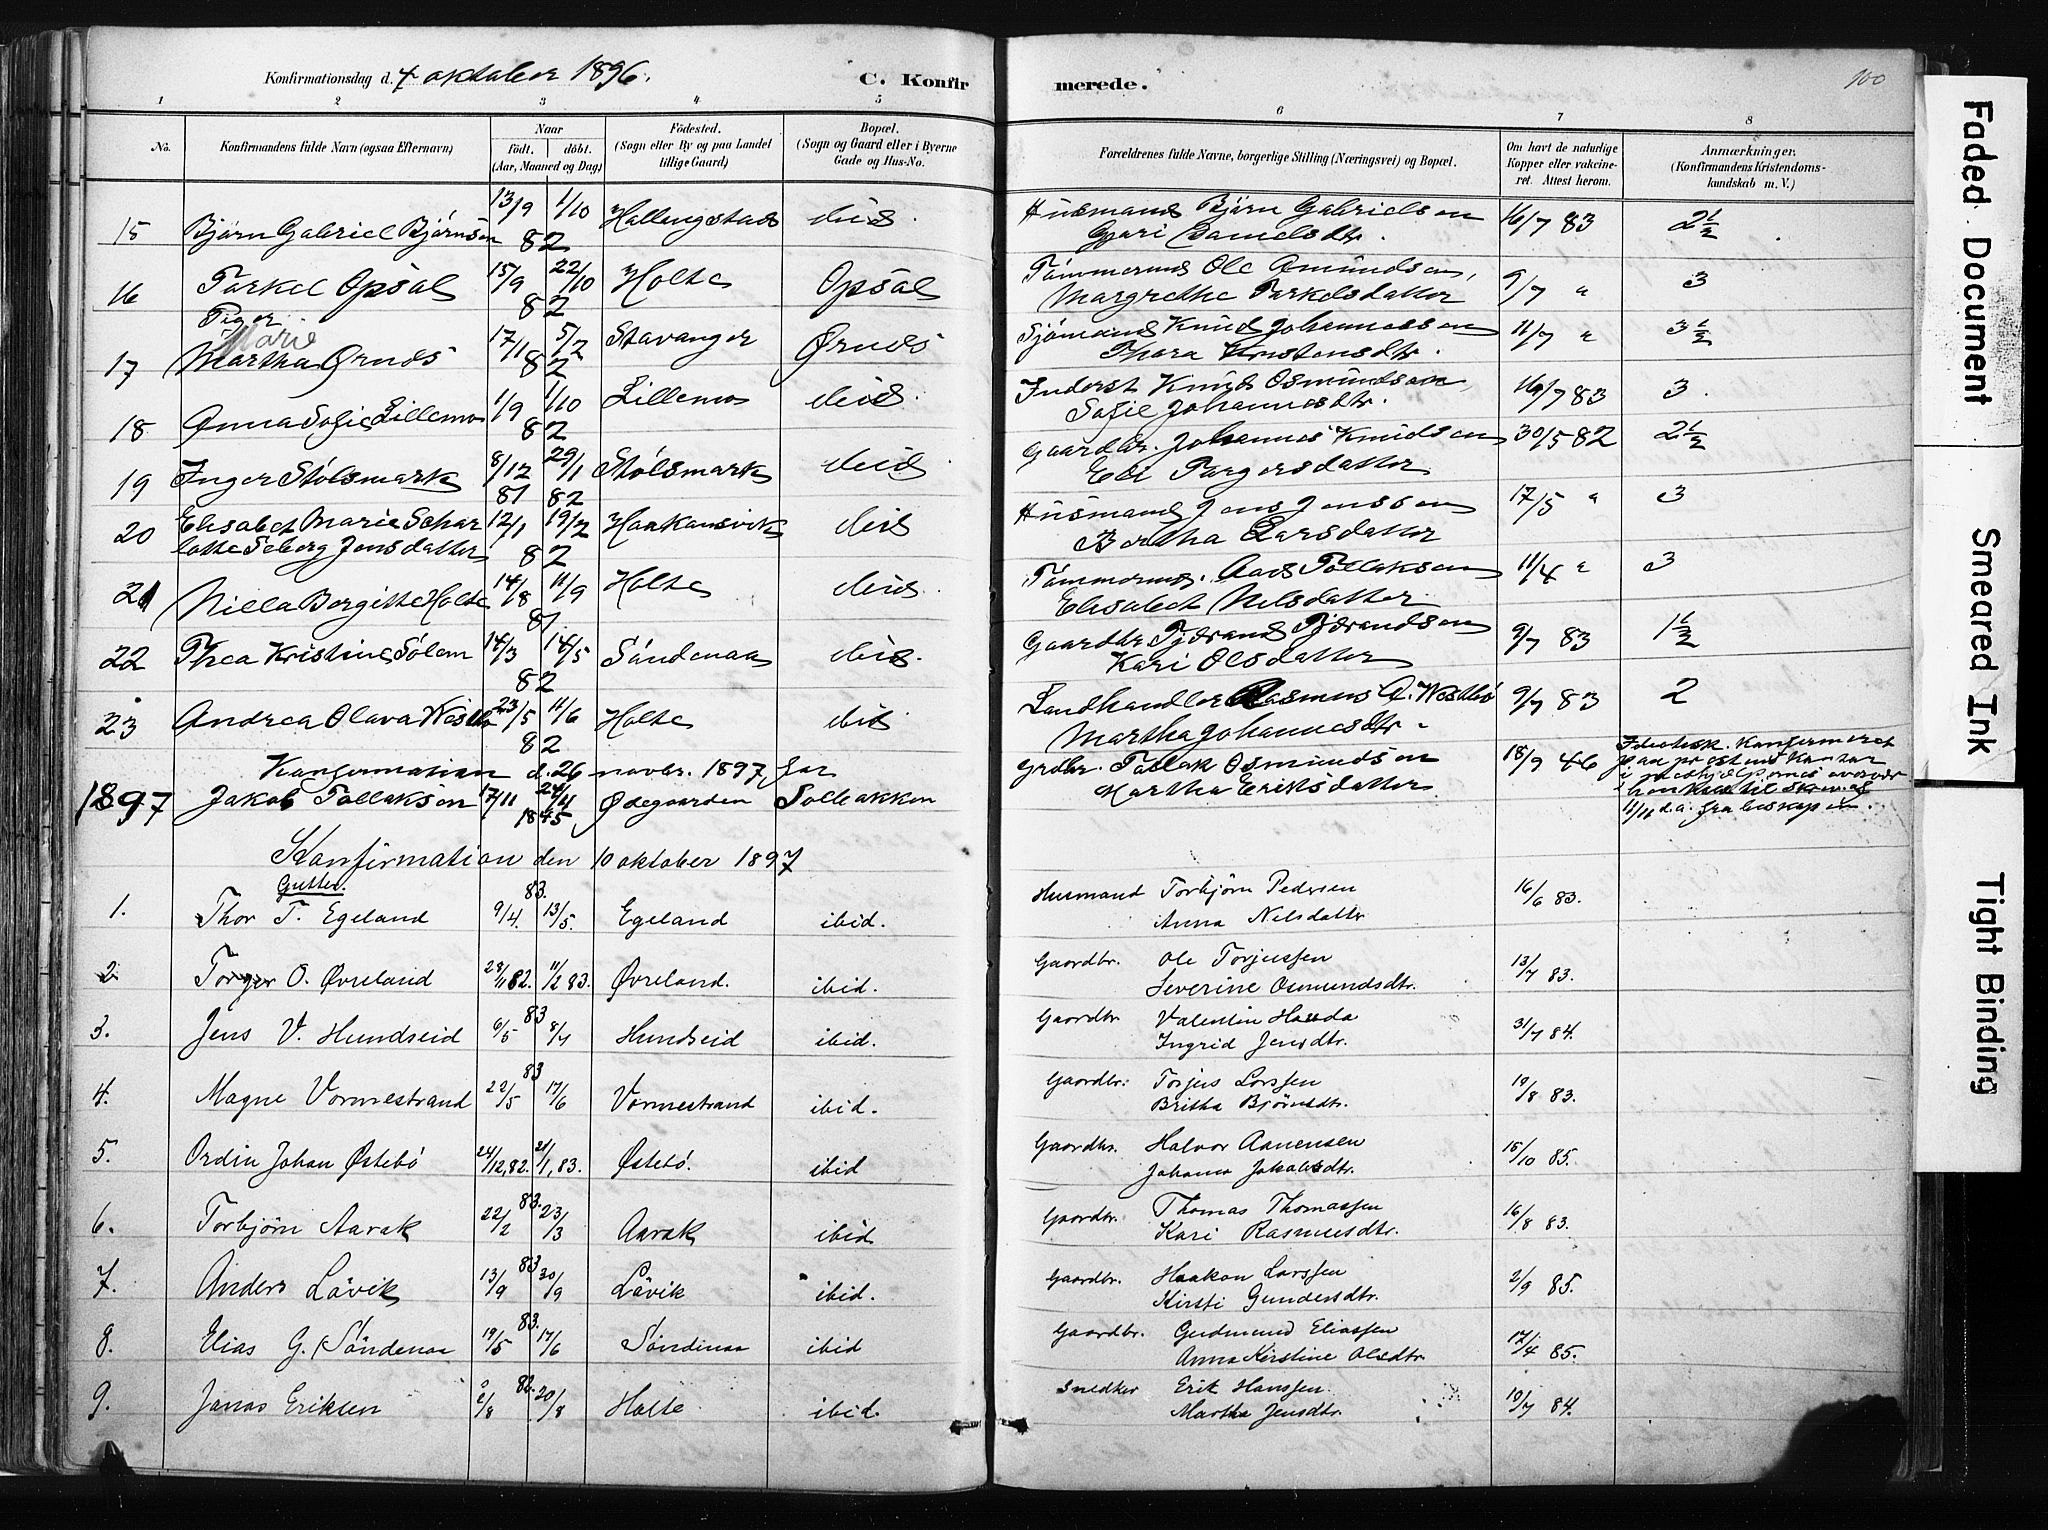 Konfirmationsdag d. 4 oktober 1896.
C. Konfirmerede.
100
1 2 3 4 5 6 7 8
No.
Konfirmandens fulde Navn (ogsaa Efternavn)
Naar
Födt. döbt.
(Aar, Maaned og Dag)
Födested.
(Sogn eller By og paa Landet tillige Gaard)
Bopæl.
(Sogn og Gaard eller i Byerne Gade og Hus-No.
Forældrenes fulde Navne, borgerlige Stilling (Næringsvei) og Bopæl.
Om havt de naturlige Kopper eller vakcineret. Attest herom.
Anmærkninger.
(Konfirmandens Kristendomskundskab m. V.)
15 Bjørn Gabriel Bjørnsen 13/9 1/10 82 ibid. Husmand Bjørn Gabrielsen 16/7 83 2 1/2
16 Torkel Opsal 15/9 22/10 82 Holte Opsal Tømmermd Ole Omundsen, Margrethe Torkelsdatter 9/7 " 3
Piger
Marie
17 Martha Ørnes 17/1 5/2 82 Stavanger Ørnes Sjømand Knud Johannessen 11/7 " 3 1/2
18 Anna Sofie Lillemo 1/9 1/10 82 Lillemo ibid. Inderst Knud Osmundsen Sofie Johannesdtr. 3.
19 Inger Stølsmark 8/12 81 29/1 82 Stølsmark ibid Gaardbr. Johannes Knudsen Eli Torgersdatter 30/5 82 2 1/2
20 Elisabet Marie Scharlotte Seberg Jensdatter 12/1 19/2 82 Haakonsvik ibid Husmand Jens Jenssen Bertha Larsdatter 17/5 " 3
21 Nilla Bergitte Holte 14/8 11/9 81 Holte ibid. Tømmermd. Tollaksen Elisabet Nilsdatter 11/4 " 3
22 Thea Kristine Sølem 14/3 14/5 82 Söndenaa ibid. Gaardbr Tjærand Tjærandsen Kari Olsdatter 9/7 83
23 Andrea Olava Westbø 23/5 11/6 82 Holte ibid Landhandler Rasmus A. Westbø Martha Johannesdtr. 9/7 83 2
Konfirmation d. 26 novbr. 1897 for
1897 Jakob Tollaksen 17/11 24/11 1845 Ødegaarden Solbakken Grdbr. Tollak Osmundsen Martha Eriksdatter 18/9 46
11/11 d.a. fra biskopen.
Konfirmation den 10 oktober 1897
Gutter.
1. Thor T. Egeland 9/4. 83. 13/5. Egeland ibid. Husmand Torbjørn Pedersen Anna Nilsdattr 16/6 83.
2 Torger O. Øvreland 28/11 82. 11/2 83. Øvreland. ibid. Gaardbr. Ole Torjussen Severine Osmundsdtr. 13/7 83.
3. Jens V. Hundseid 6/5 83 8/7 Hundseid ibid. Gaardbr Valentin Ingrid Jensdtr. 31/7 84.
4. Magne Vormestrand 22/5 83 17/6 Vormestrand ibid. Gaardbr: Torjus Larssen Britha Bjørnsdtr. 19/8 83.
5. Ordin Johan Østebø 24/12, 82. 21/1, 83. Østebø. ibid Gaardbr. Halvor Aanensen Johanna Jakobsdtr. 15/10 85.
6. Torbjørn Aarak 22/2 83. 23/3 Aarak ibid Gaardbr. Thomas Thomassen Kari Rasmusdtr. 16/8 83.
7. Anders Lövik 13/9 83 30/9 Lövik ibid. Gaardbr. Haakon Larssen Kirsti Gundersdtr. 2/9 85.
8. Elias G. Söndenaa 19/5 83. 17/6 Söndenaa ibid Gaardbr. Gudmund Eliassen Anna Kirstine Olsdtr 17/4 85.
9. Jonas Eriksen 2/8 82. 20/8 Holte ibid. Snedker Erik Hanssen Martha Jensdtr. 19/7 84.
Faded Document
Smeared Ink
Tight Binding